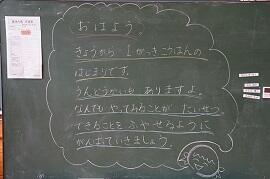 おはよう。
きょうから 1がっきこうはんの
はじまりです。
うんどうかいも ありますよ。
なんでも やってみることが たいせつ。
できることを ふやせるように
がんばっていきましょう。